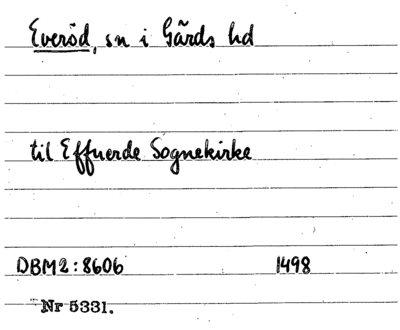 Everöd, sn i Gärds hd
til Effuerde Sognekirke
DBM2:8606 1498
Nr 5331.